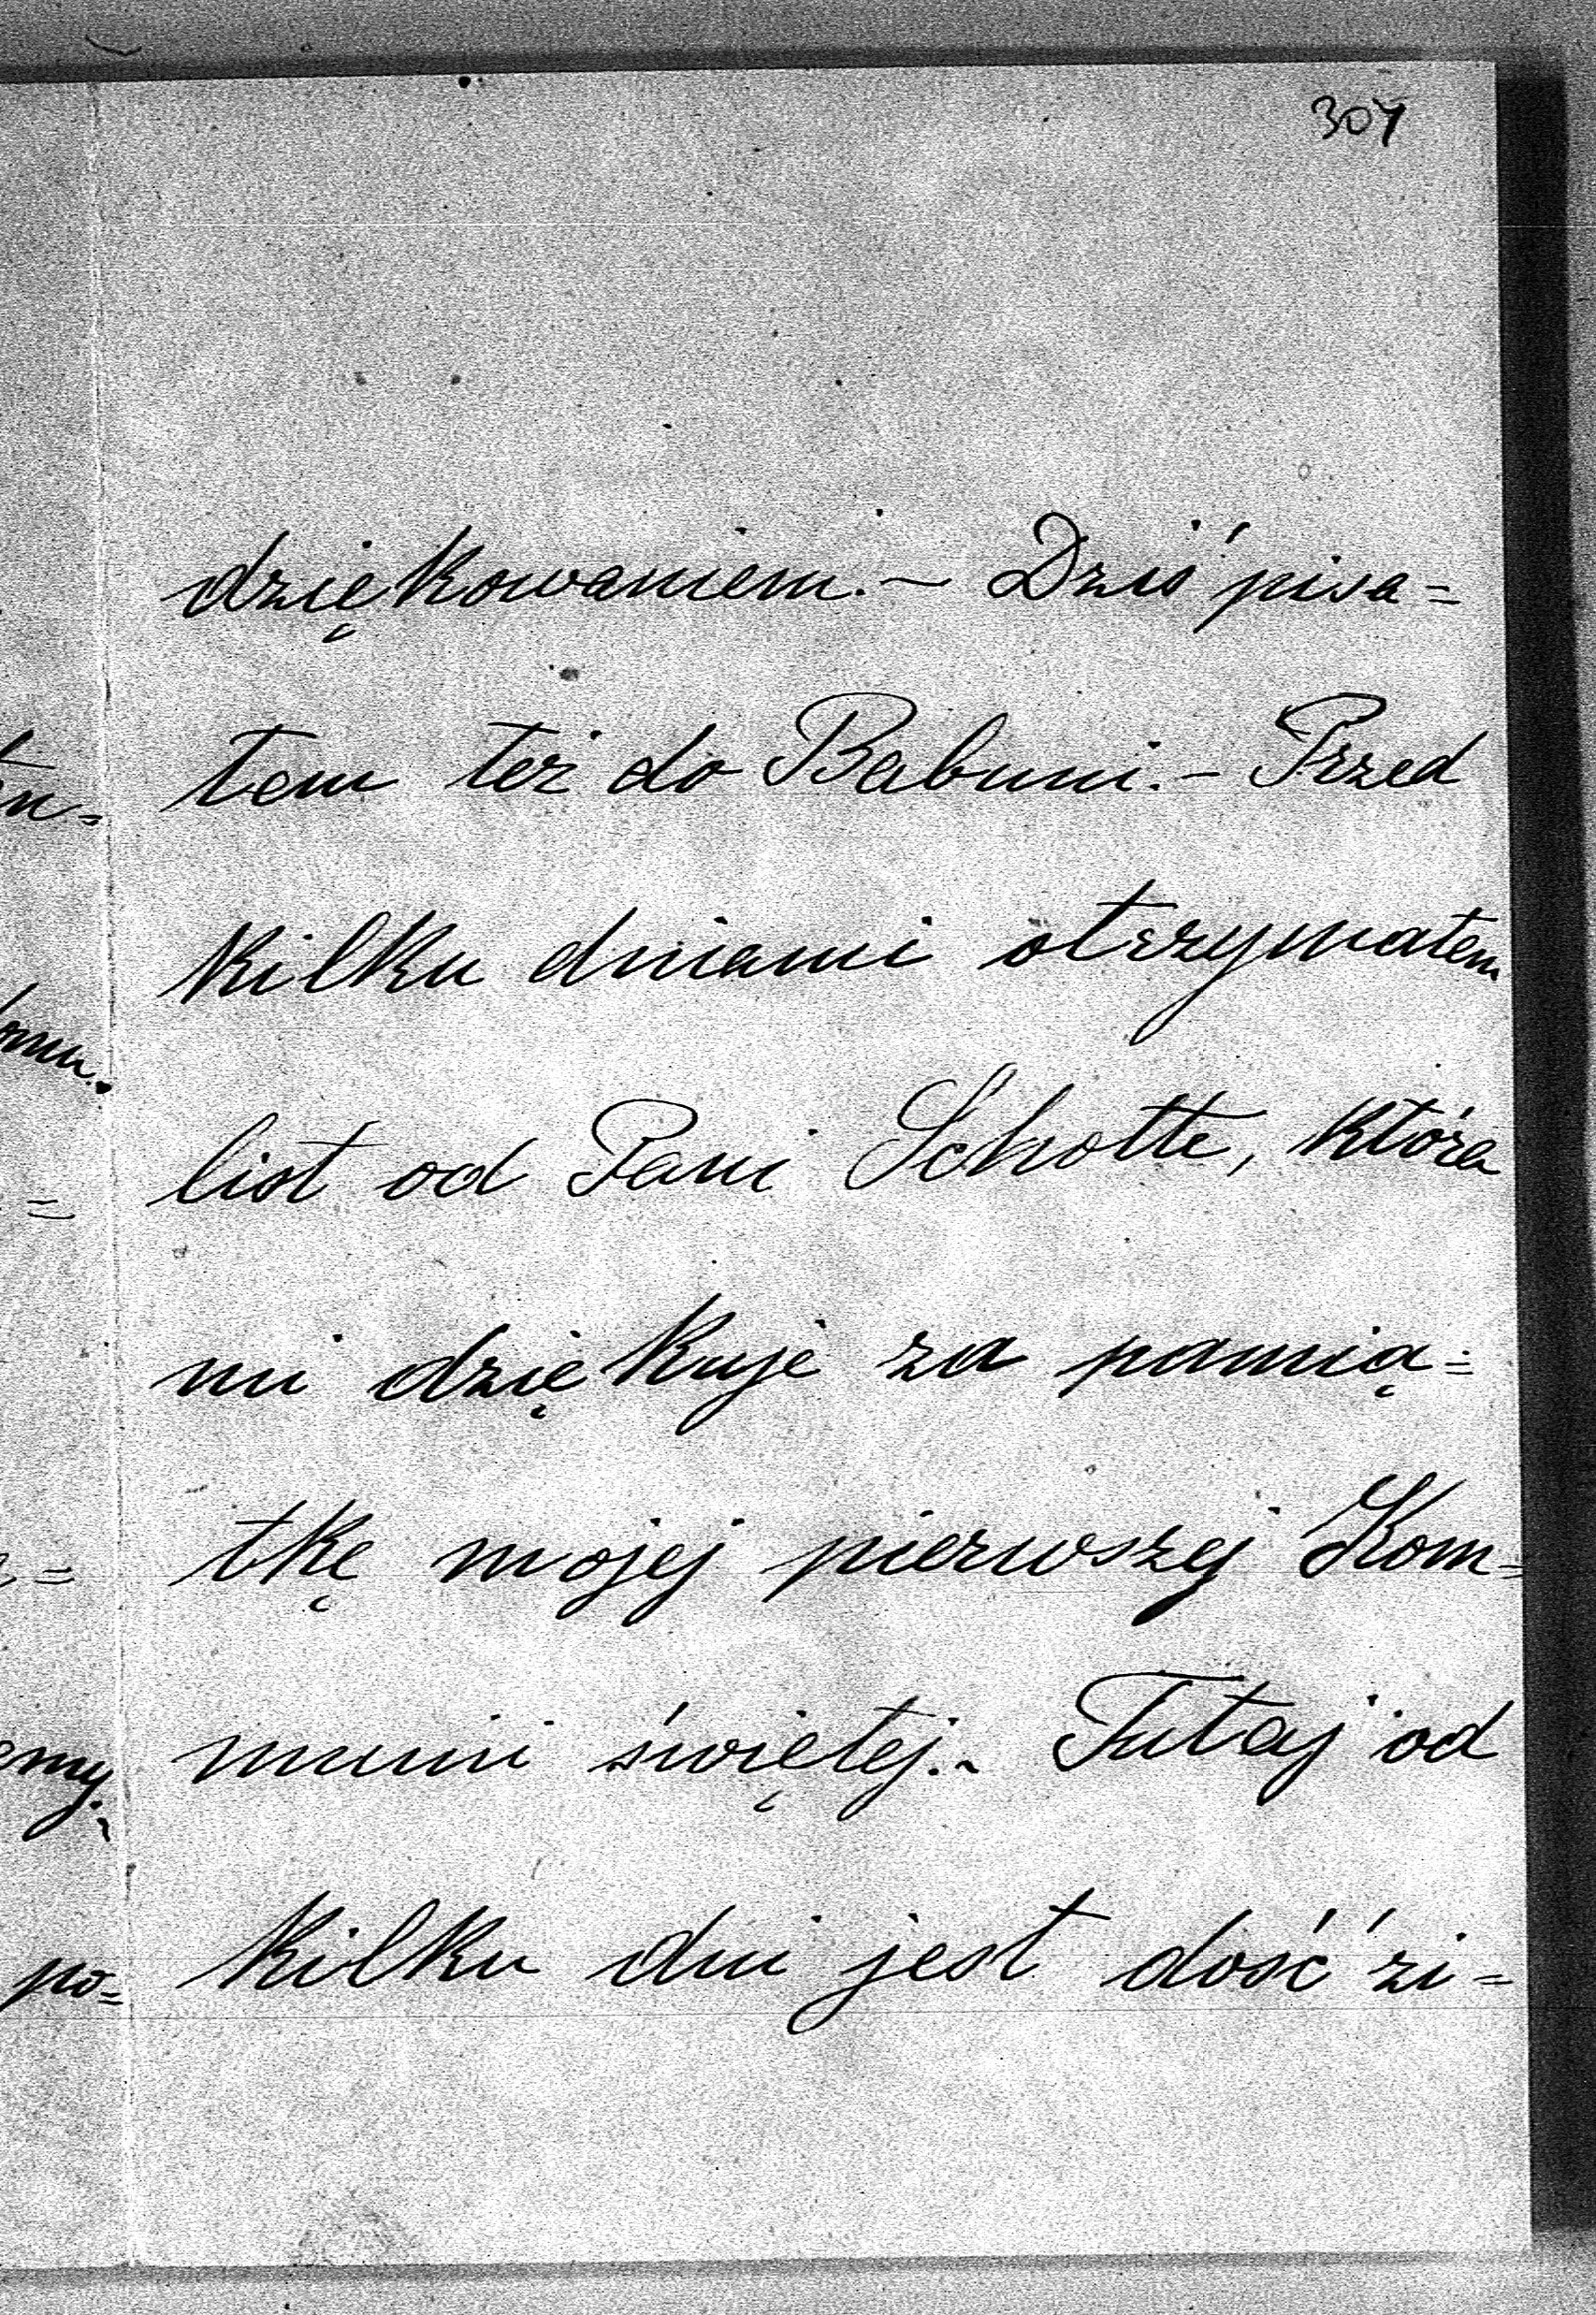 307
dziękowaniem. ~ Dziś pisa=
łem też do Babuni. - Przed
kilku dniami otrzymałem
list od Pani Scholtte, która
mi dziękuje za pamią=
tkę mojej pierwszej Kom=
munii świętej. ~ Tutaj od
kilku dni jest dość zi=